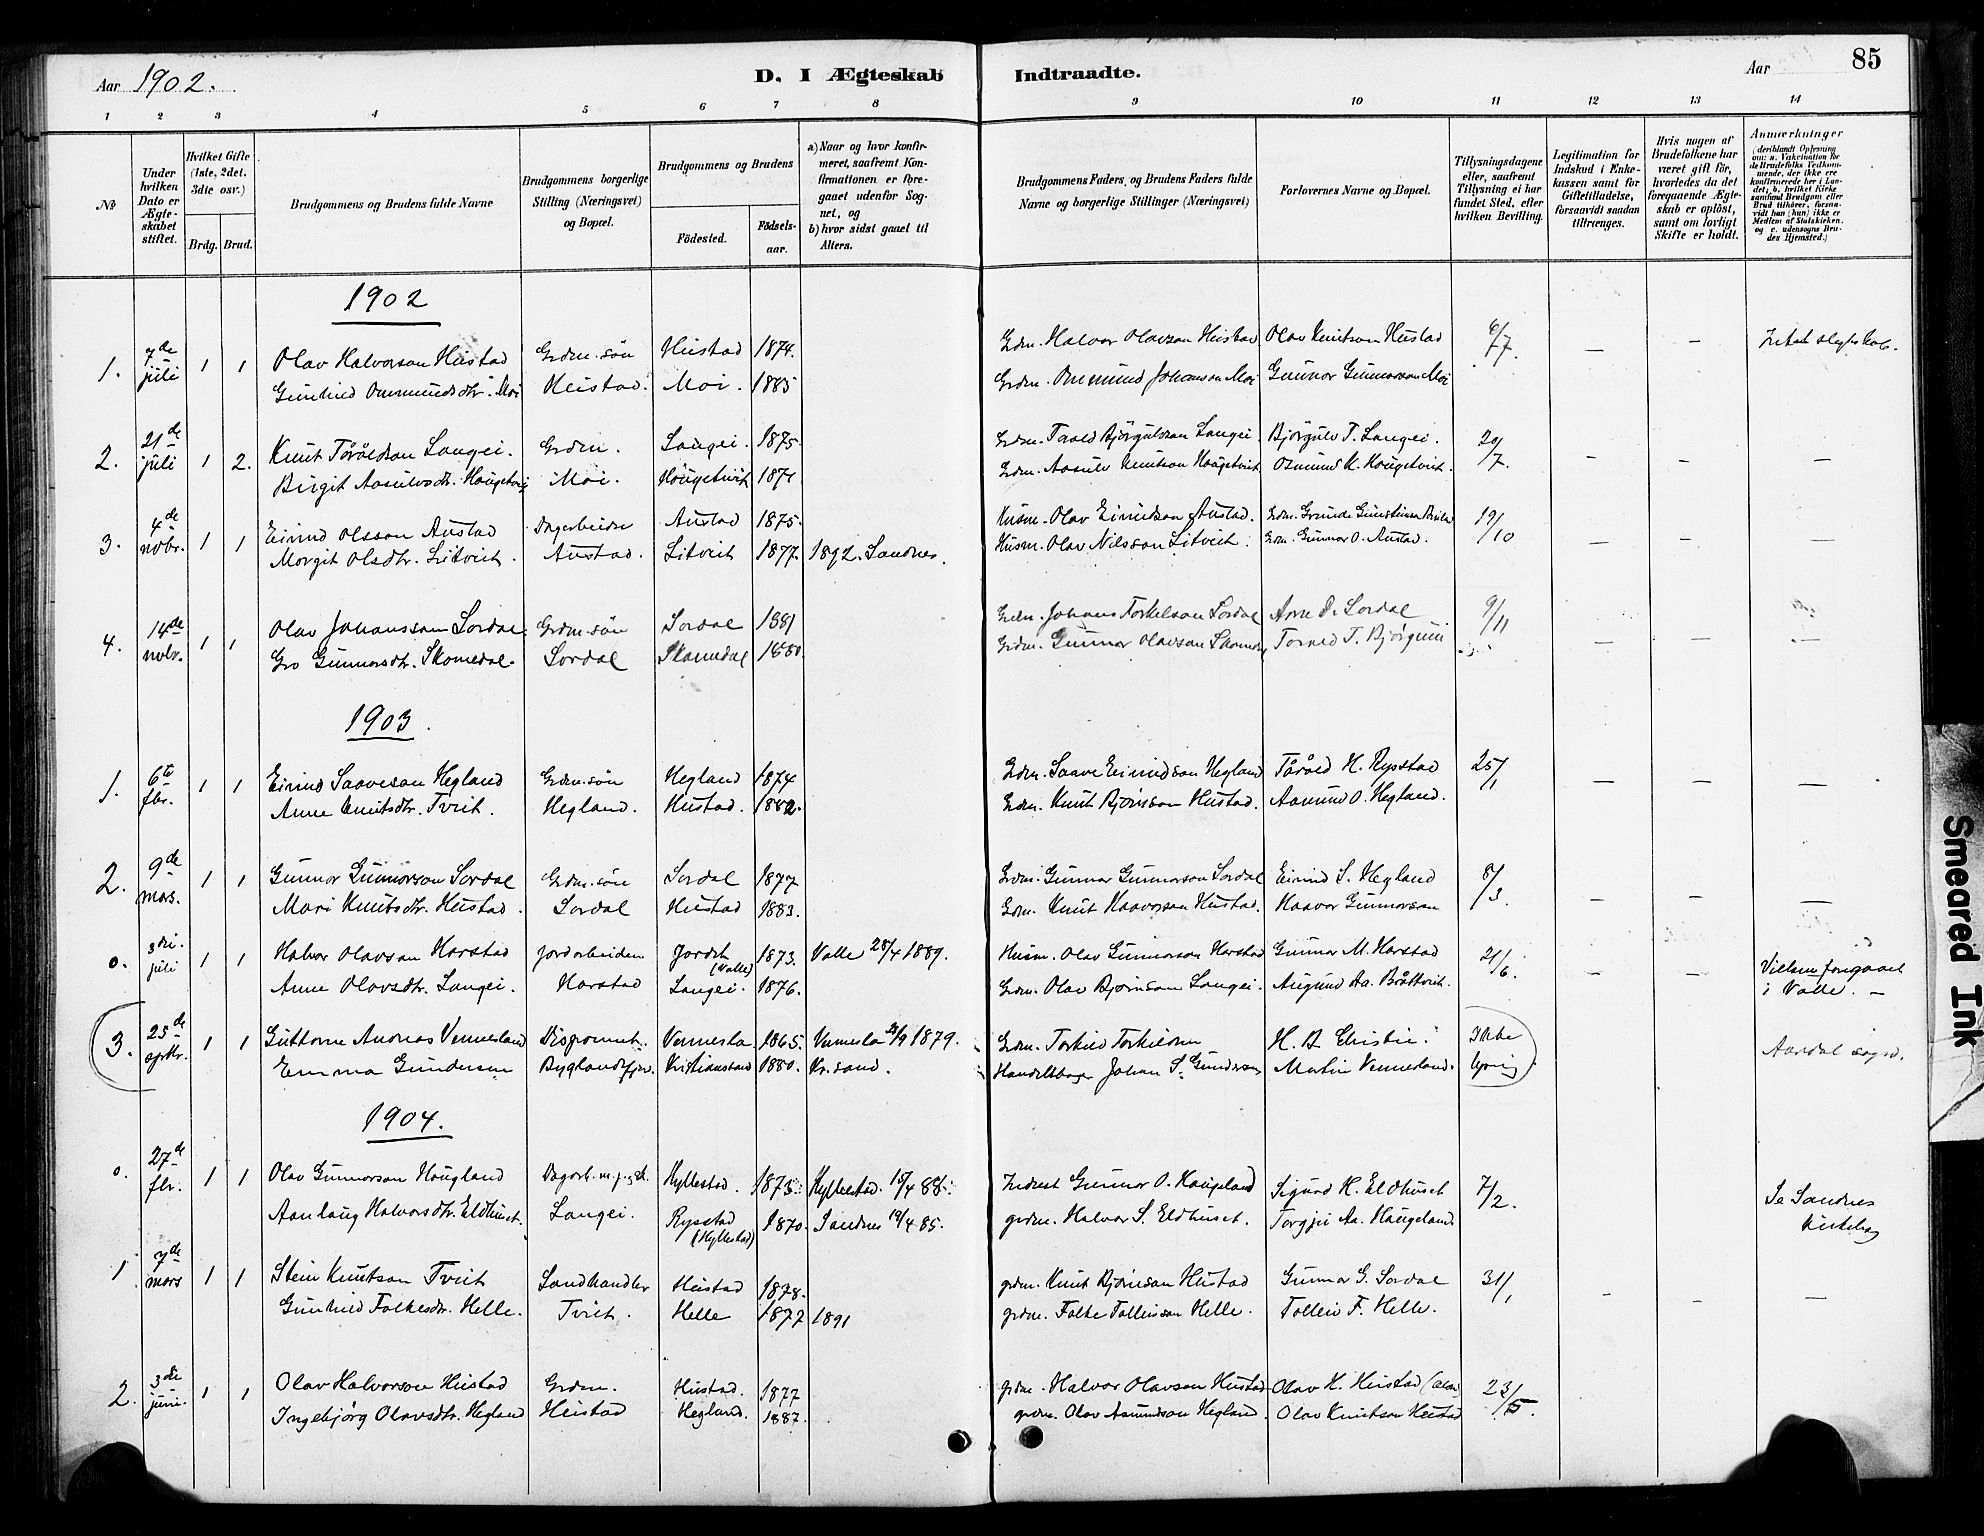 Aar 1902. D. I Ægteskab Indtraadte. Aar 85
1 2 3 4 5 6 7 8 9 10 11 12 13 14
№
Under hvilken Dato er Ægteskabet stiftet.
Hvilket Gifte (1ste, 2det, 3die osv.)
Brdg. Brud.
Brudgommens og Brudens fulde Navne
Brudgommens borgerlige Stilling (Næringsvei) og Bopæl.
Brudgommens og Brudens
Fødested. Fødselsaar.
a) Naar og hvor konfirmeret, saafremt Konfirmationen er foregaaet udenfor Sognet, og
b) hvor sidst gaaet til Alters.
Brudgommens Faders, og Brudens Faders fulde Navne og borgerlige Stillinger (Næringsvei)
Forlovernes Navne og Bopæl.
Tillysningsdagene eller, saafremt Tillysning ei har fundet Sted, efter hvilken Bevilling.
Legitimation for Indskud i Enkekassen samt for Giftetilladelse, forsaavidt saadan tiltrænges.
Hvis nogen af Brudefolkene har været gift før, hvorledes da det foregaaende Ægteskab er opløst, samt om lovligt Skifte er holdt.
Anmærkninger (deriblandt Oplysning om: a. Vakcination for de Brudefolks Vedkommende, der ikke ere konfirmerede her i Landet; b. hvilket Kirkesamfund Brudgom eller Brud tilhører, forsaavidt han (hun) ikke er Medlem af Statskirken, og c. udensogns Brudes Hjemsted.)
1902
1. 7de juli 1 1 Olav Halvorson Hustad Grdm.søn Hustad 1874. Grdm. Halvor Olavson Hustad Olav Knutson Hustad 6/7.
Gunhild Ommundsdtr. Moi Hustad. Moi. 1885 Grdm. Ommund Johanson Moi Gunnar Gunnarson Moi
2. 21de juli 1 2. Knut Tåråldson Langei. Grdm. Langei. 1875. Grdm. Torald Bjørgulvson Langei. Bjørgulv T. Langei. 20/7.
Birgit Aasulvsdtr. Haugetveit Moi. Haugetveit Grdm. Aasulv Knutson Haugetveit Osmund K. Haugetveit.
3. 4de novbr. 1 1 Eivind Olsson Austad Austad 1875. Husm. Olav Eivindson Austad. 19/10
Morgit Olsdtr. Litveit. Austad. Litveit 1877. 1892. Sandnes. Husm. Olav Nilsson Litveit. Grdm. Gunnar O. Austad.
4. 14de novbr. 1 1 Olav Johansson Sordal. Grdm.søn Sordal 1881 Grdm. Johans Torkelson Sordal Arne D. Sordal 9/11
Gro Gunnarsdtr. Skomedal. Sordal Skomedal 1880. Grdm. Gunnar Olavson Skomedal Torleid T. Bjørgum
1903.
1. 6te fbr. 1 1 Eivind Saaveson Hegland Grdm.søn Hegland 1874 Grdm. Saave Eivindson Hegland Tåråld H. Rysstad 25/1
Anne Knutsdtr. Tveit. Hegland. Hustad. 1882. Grdm. Knut Bjørnson Hustad. Aamund O. Hegland.
2. 9de mars. 1 1 Gunnar Gunnarson Sordal Grdm.søn Sordal 1877 Grdm. Gunnar Gunnarson Sordal Eivind S. Hegland 8/3
Mari Knutsdtr. Hustad. Sordal Hustad 1883. Grdm. Knut Haavorson Hustad. Haavor Gunnarson
0. 3die juli 1 1 Halvor Olavson Harstad Jordarbeider Jordet (Valle) 1873. Valle 28/4 1889. Husm. Olav Gunnarson Harstad Gunnar M. Harstad 21/6. Vielsen foregaaet i Valle.
Anne Olavsdtr. Langei. Harstad Langei. 1876. Grdm. Olav Bjørnson Langei. Augund Aa. Bråttveit.
3. 25de septbr. 1 1 Guttorm Andreas Vennesland Disponent. Vennesla 1865. Vennesla 1879. Grdm. Torkild Torkildsen H. A. Christie. Ikke lysning Aardal sogn.
Emma Gundersen Byglandsfjord. Kristianssand 1880. Kr.sand. Handelsborger Johan S. Gundersen Martin Vennesland.
1904.
0. 27de fbr. 1 1 Olav Gunnarson Haugland Hyllestad. 1873. Hyllestad. 15/4 88. Indrest Gunnar O. Haugland Sigurd H. Eldhuset 7/2. Se Sandnes kirkebog
Aanlaug Halvorsdtr. Eldhuset. Langei. Rysstad (Hyllestad) 1870. Sandnes 19/4 85. grdm. Halvor S. Eldhuset. Torgjus Aa. Haugeland.
1 7de mars 1 1 Stein Knutson Tveit Landhandler Hustad 1878. grdm. Knut Bjørnson Hustad Gunnar G. Sordal 31/1
Gunhild Folkesdtr. Helle. Tveit. Helle 1877 1891 grdm. Folke Tolleivson Helle. Tolleiv F. Helle.
2. 3die juni. 1 1 Olav Halvorson Hustad Grdm. Hustad. 1877 grdm. Halvor Olavson Hustad Olav H. Hustad 23/5.
Ingebjørg Olavsdtr. Hegland Hustad Hegland. 1887. grdm. Olav Asmundson Hegland. Olav Knutson Hustad
Smeared Ink